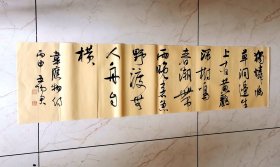 獨憐幽
草澗邊生
上有黃鸝
深樹鳴
春潮帶
雨晚來急
野渡無
人舟自
橫
韋應物詩
丙申